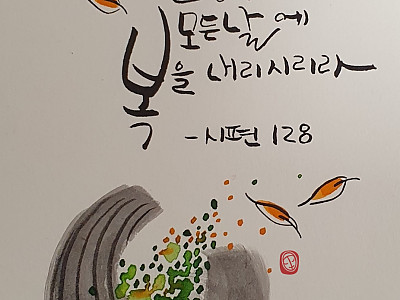 모든날에
복을 내리시리라
-시편 128